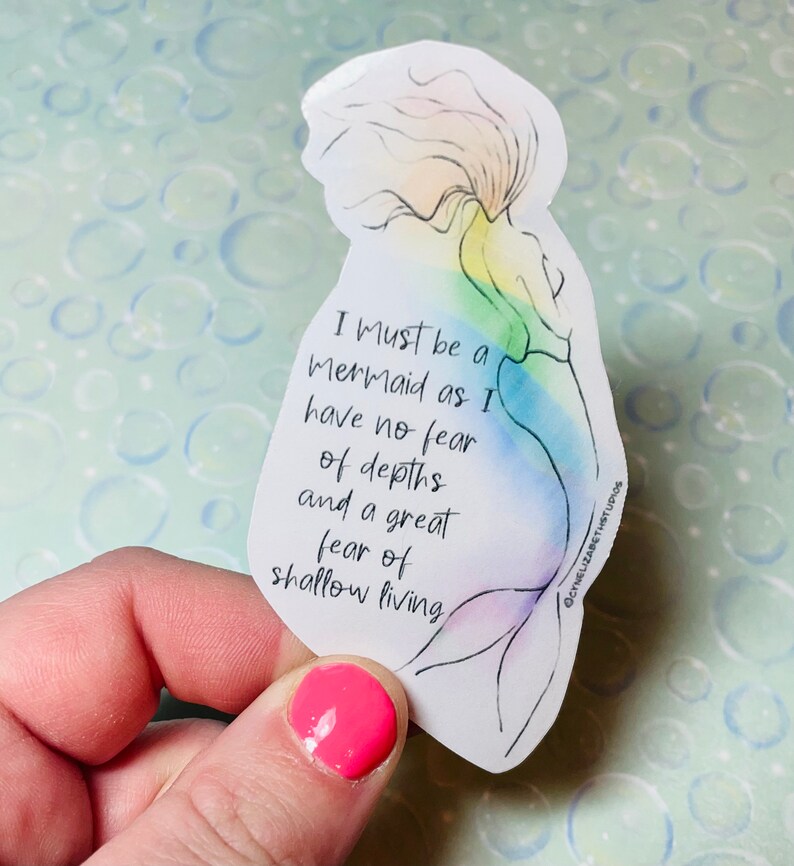 I must be a
mermaid as I
have no fear
of depths
and a great
fear of
shallow living
©CYNELIZABETHSTUDIOS